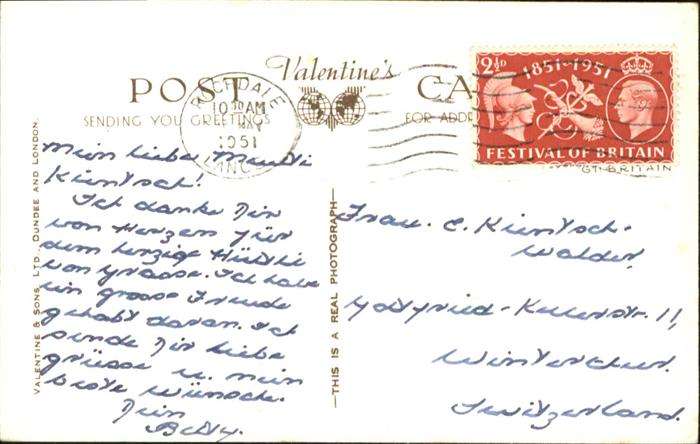 POST Valentine's CA
SENDING YOU GREETINGS FOR ADDRE
ROCHDALE
10 30 AM
MAY
1951
LANCS
2½D 1851-1951
FESTIVAL OF BRITAIN
GT BRITAIN
VALENTINE & SONS, LTD., DUNDEE AND LONDON.
THIS IS A REAL PHOTOGRAPH
Mein liebe
Küntsch!
Ich danke Dir
von Herzen für
dem herzige
von Ich habe
ein grosse Freude
gehabt daran. Ich
sende Dir liebe
grüsse u. mein
beste wünsche.
Dein
Betty.
Frau. C. Küntsch-
Walder,
Gottfried-Kellerstr. 11,
Winterthur.
Switzerland.